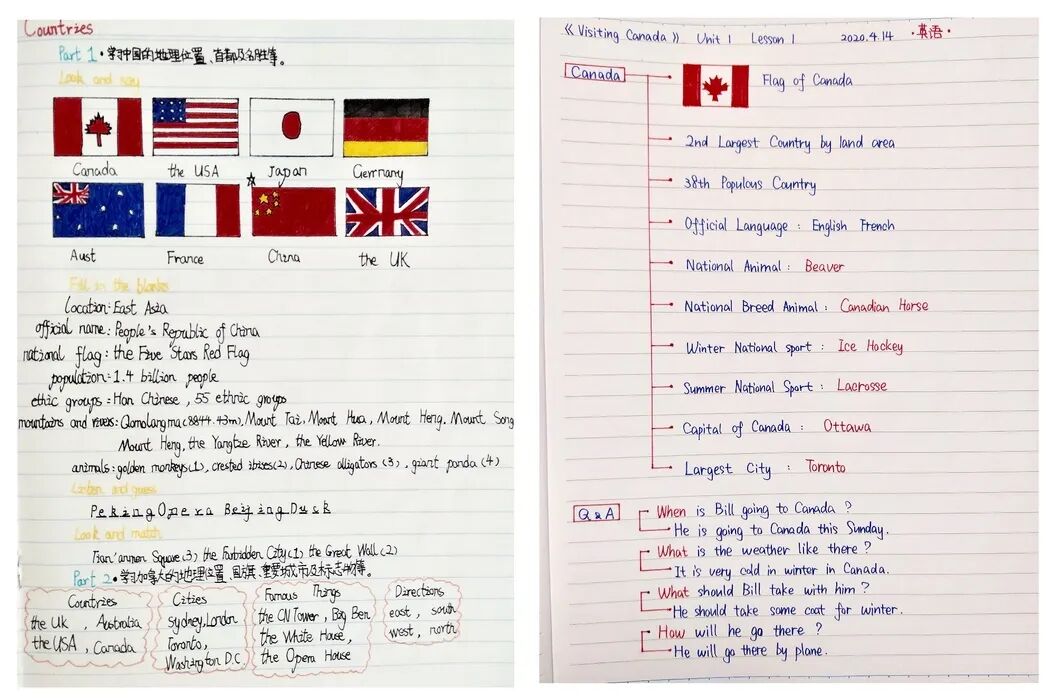 Countries
Part 1 • 学习中国的地理位置、首都及名胜等。
Look and say
Canada the USA Japan Germany
Aust France China the UK
Fill in the blanks
location: East Asia
official name: People's Republic of China
national flag: the Five Stars Red Flag
population: 1.4 billion people
ethic groups: Han Chinese, 55 ethnic groups
mountains and rivers: Qomolangma (8844.43m), Mount Tai, Mount Hua, Mount Heng, Mount Song
Mount Heng, the Yangtze River, the Yellow River.
animals: golden monkeys (1), crested ibises (2), Chinese alligators (3), giant panda (4)
Listen and guess
Peking Opera Beijing Duck
Look and match
Tian'anmen Square (3) the Forbidden City (1) the Great Wall (2)
Part 2 • 学习加拿大的地理位置、国旗、重要城市及标志物等。
Countries
the UK, Australia
the USA, Canada
Cities
Sydney, London
Toronto,
Washington D.C
Famous Things
the CN Tower, Big Ben
the White House,
the Opera House
Directions
east, south
west, north
《Visiting Canada》 Unit 1 Lesson 1 2020.4.14 •英语•
Canada
Flag of Canada
2nd Largest Country by land area
38th Populous Country
Official Language: English French
National Animal: Beaver
National Breed Animal: Canadian Horse
Winter National sport: Ice Hockey
Summer National Sport: Lacrosse
Capital of Canada: Ottawa
Largest City: Toronto
Q&A
When is Bill going to Canada?
He is going to Canada this Sunday.
What is the weather like there?
It is very cold in winter in Canada.
What should Bill take with him?
He should take some coat for winter.
How will he go there?
He will go there by plane.